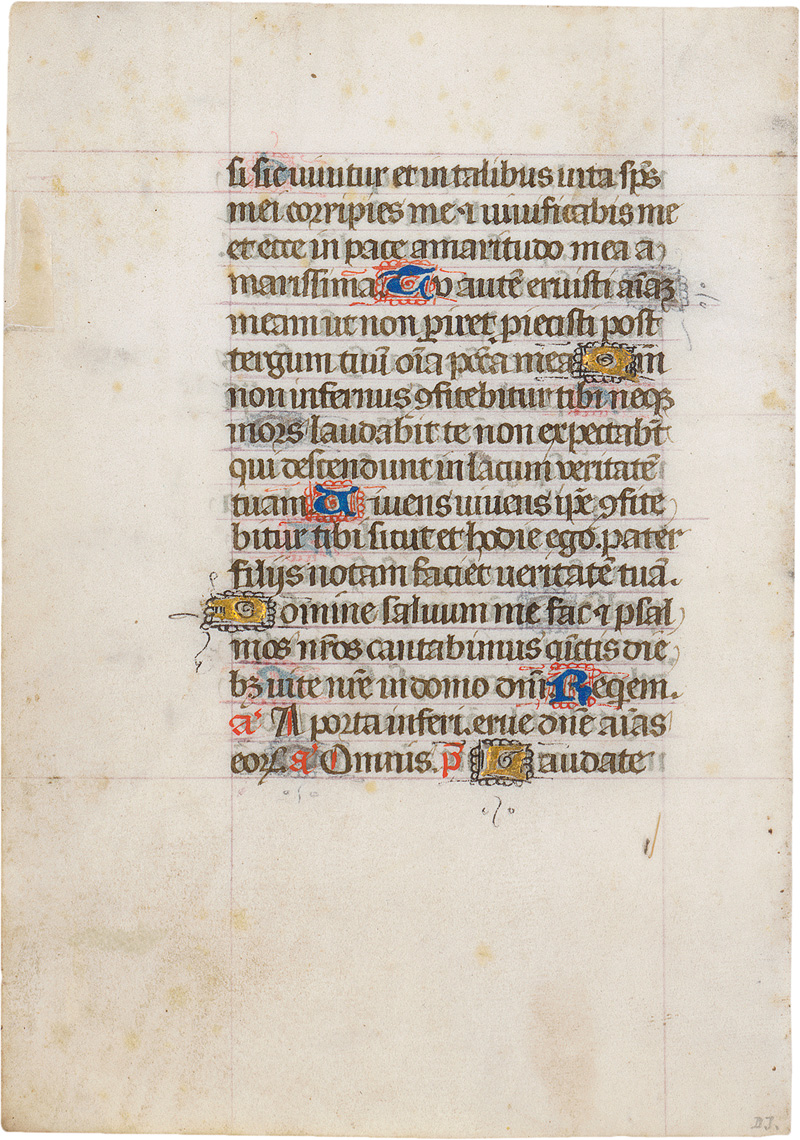 si sic uiuitur et in talibus uita sp̄s
mei corripies me ⁊ uiuificabis me
et ecce in pace amaritudo mea a
marissima Tu autē eruisti aīaȝ
meam ut non ꝑiret ꝓiecisti post
tergum tuū oīa pcc̄a mea Qm
non infernus ꝯfitebitur tibi neqȝ
mors laudabit te non expectabūt
qui descendunt in lacum veritatē
tuam Uiuens uiuens ip̄e ꝯfite
bitur tibi sicut et hodie ego. pater
filijs notam faciet veritatē tuā.
Domine saluum me fac ⁊ psal
mos nr̄os cantabimus cūctis die
bȝ uite nr̄e in domo dn̄i Reqem.
a' A porta inferi. erue dn̄e aīas
eoꝝ a' Omnis. p̄ Laudate
D J.